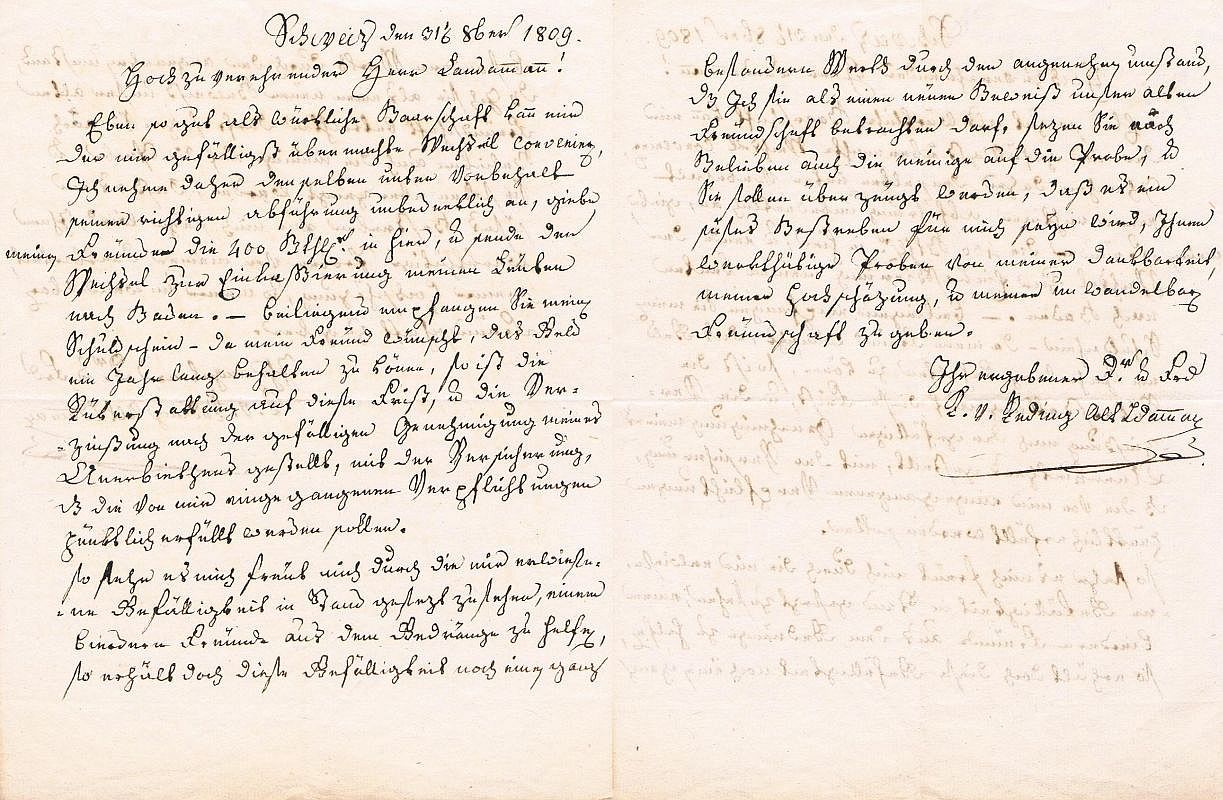 Schweiz den 31t 8ber 1809.
Hochzuverehrender Herr Landamann!
Eben so gut als würkliche Baarschaft kann mir
der mir gefälligst übermachte Wechsel convenier,
Ich nehme daher denselben unter Vorbehalt
seiner richtigen abführung unbedenklich an, giebe
meinen Freünde die 400 in hier, u sende den
Wechsel zur Einkassierung meinen Leüten
nach Baden. — beiliegend empfangen Sie meinen
Schuldschein – da mein Freünd wünscht, das Geld
ein Jahr lang behalten zu könen, so ist die
Rükerstattung auf diese Frist, u die Ver-
-zinßung nach der gefälligen Genehmigung meines
Anerbiethens gestellt, mit der Versicherung,
dß die von mir eingegangenen Verpflichtungen
pünktlich erfüllt werden sollen.
so sehr es mich freüt mich durch die mir erwiese-
-ne Gefälligkeit in Stand gesezt zu sehen, einem
biedern Freünde aus dem Gedränge zu helfen,
so erhält doch diese Gefälligkeit noch einen ganz
besondern Werth durch den angenehmen umstand,
dß Ich sie als einen neüen Beweiß unser alten
Freündschaft betrachten darf, sezen Sie nach
Belieben auch die meinige auf die Probe, u
Sie sollen überzeügt werden, daß es ein
süses Bestreben für mich seÿn wird, Ihnen
werkthätige Proben von meiner dankbarkeit,
meiner Hochschäzung, u meiner unwandelbaren
Freündschaft zu geben.
Ihr ergebener Dr u Frd
v. Reding Alt Ldamman